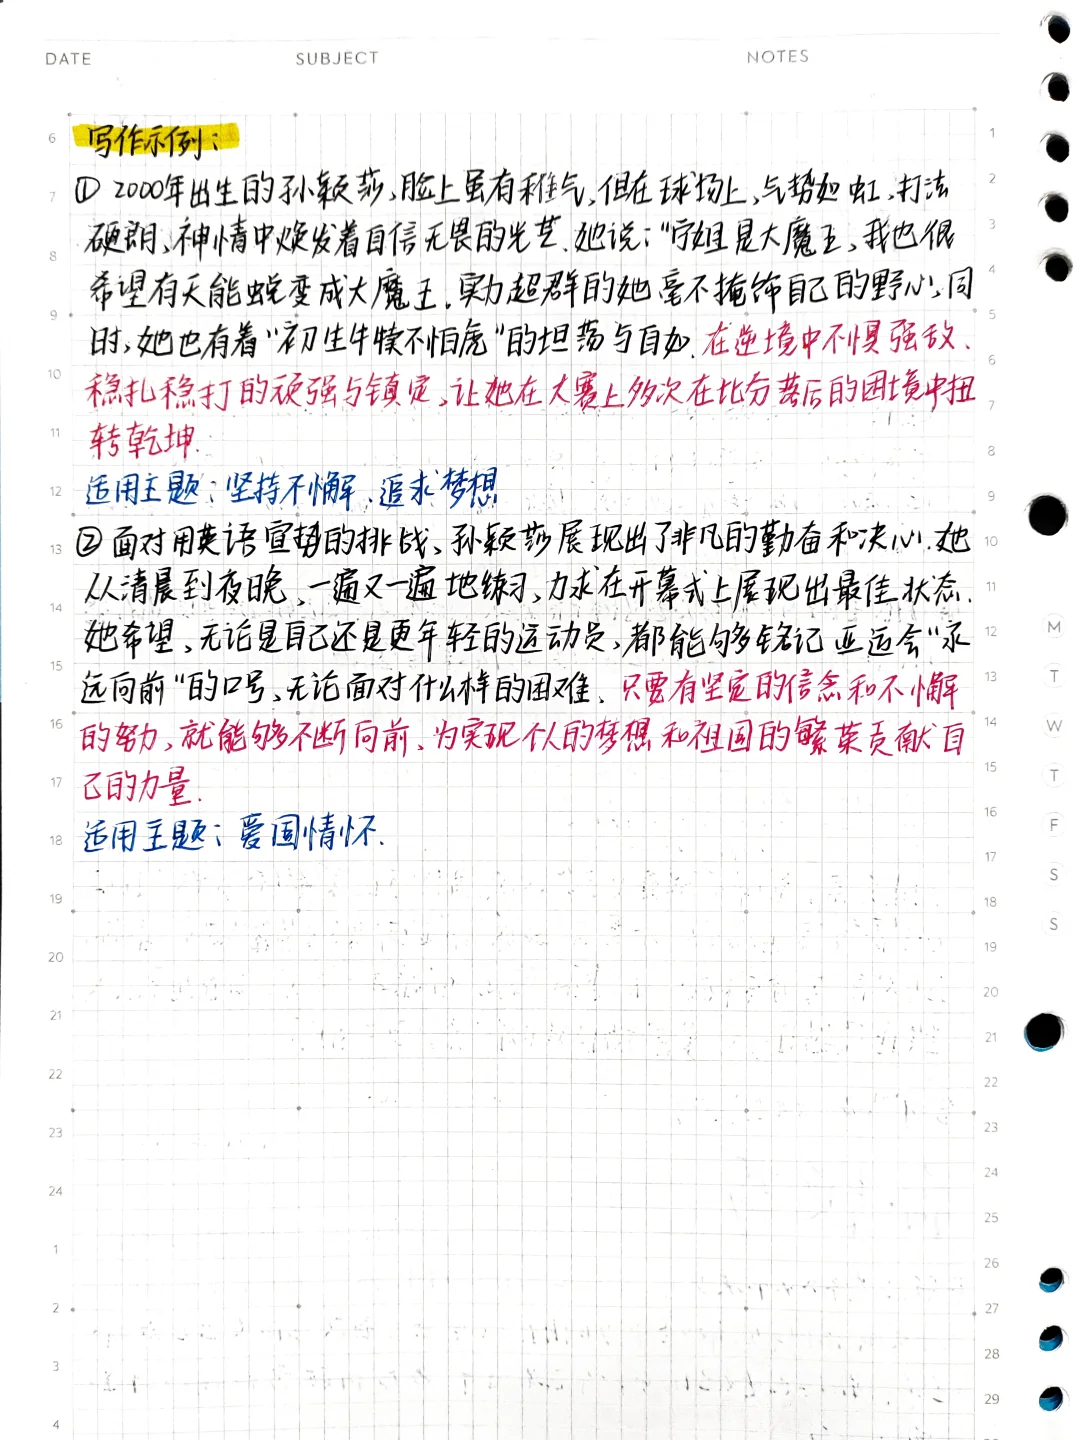 DATE SUBJECT NOTES
写作示例:
① 2000年出生的孙颖莎,脸上虽有稚气,但在球场上,气势如虹,打法
硬朗,神情中焕发着自信无畏的光芒.她说:"宁姐是大魔王,我也很
希望有天能蜕变成大魔王.实力超群的她毫不掩饰自己的野心,同
时,她也有着"初生牛犊不怕虎"的坦荡与自如.在逆境中不惧强敌、
稳扎稳打的顽强与镇定,让她在大赛上多次在比分落后的困境中扭
转乾坤.
适用主题:坚持不懈、追求梦想
② 面对用英语宣誓的挑战,孙颖莎展现出了非凡的勤奋和决心.她
从清晨到夜晚,一遍又一遍地练习,力求在开幕式上展现出最佳状态.
她希望,无论是自己还是更年轻的运动员,都能够铭记亚运会"永
远向前"的口号,无论面对什么样的困难、只要有坚定的信念和不懈
的努力,就能够不断向前、为实现个人的梦想和祖国的繁荣贡献自
己的力量.
适用主题:爱国情怀.
6
7
8
9
10
11
12
13
14
15
16
17
18
19
20
21
22
23
24
1
2
3
4
1
2
3
4
5
6
7
8
9
10
11
12
13
14
15
16
17
18
19
20
21
22
23
24
25
26
27
28
29
M
T
W
T
F
S
S